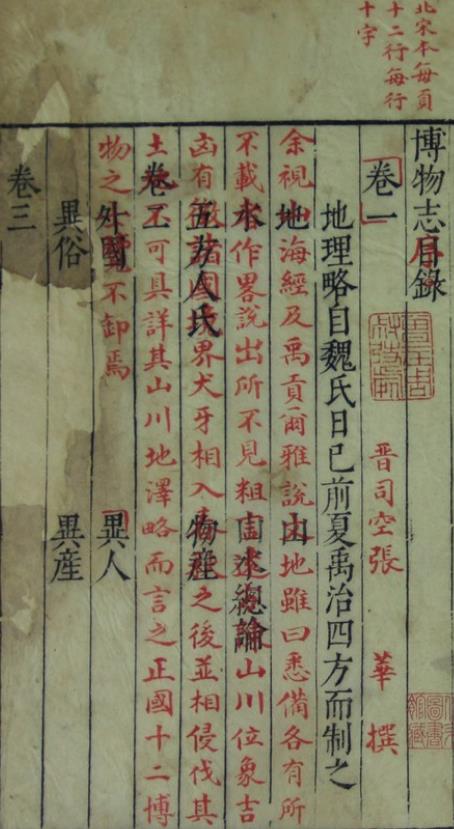 北宋本每頁
十二行每行
十字
博物志目錄
卷一
晋司空張 華 撰
地理略自魏氏日已前夏禹治四方而制之
地 山
余視海經及禹貢爾雅說地雖曰悉備各有所
水 水總論
不載作畧說出所不見粗山川位象吉
五方人民 物產
凶有諸國界犬牙相入之後並相侵伐其
卷二
土不可具詳其山川地澤略而言之正國十二博
外國 異人
物之不卸焉
異俗 異産
卷三